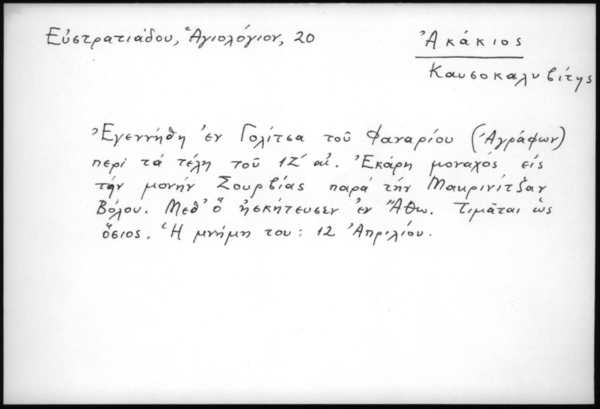 Εὐστρατιάδου, Ἁγιολόγιον, 20
Ἀκάκιος
Καυσοκαλυβίτης
Ἐγεννήθη ἐν Γολίτσα τοῦ Φαναρίου (Ἀγράφων)
περὶ τὰ τέλη τοῦ ΙΖ΄ αἰ. Ἐκάρη μοναχός εἰς
τὴν μονὴν Σουρβίας παρὰ τὴν Μακρινίτζαν
Βόλου. Μεθ' ὅ ἠσκήτευσεν ἐν Ἄθω. Τιμᾶται ὡς
ὅσιος. Ἡ μνήμη του: 12 Ἀπριλίου.